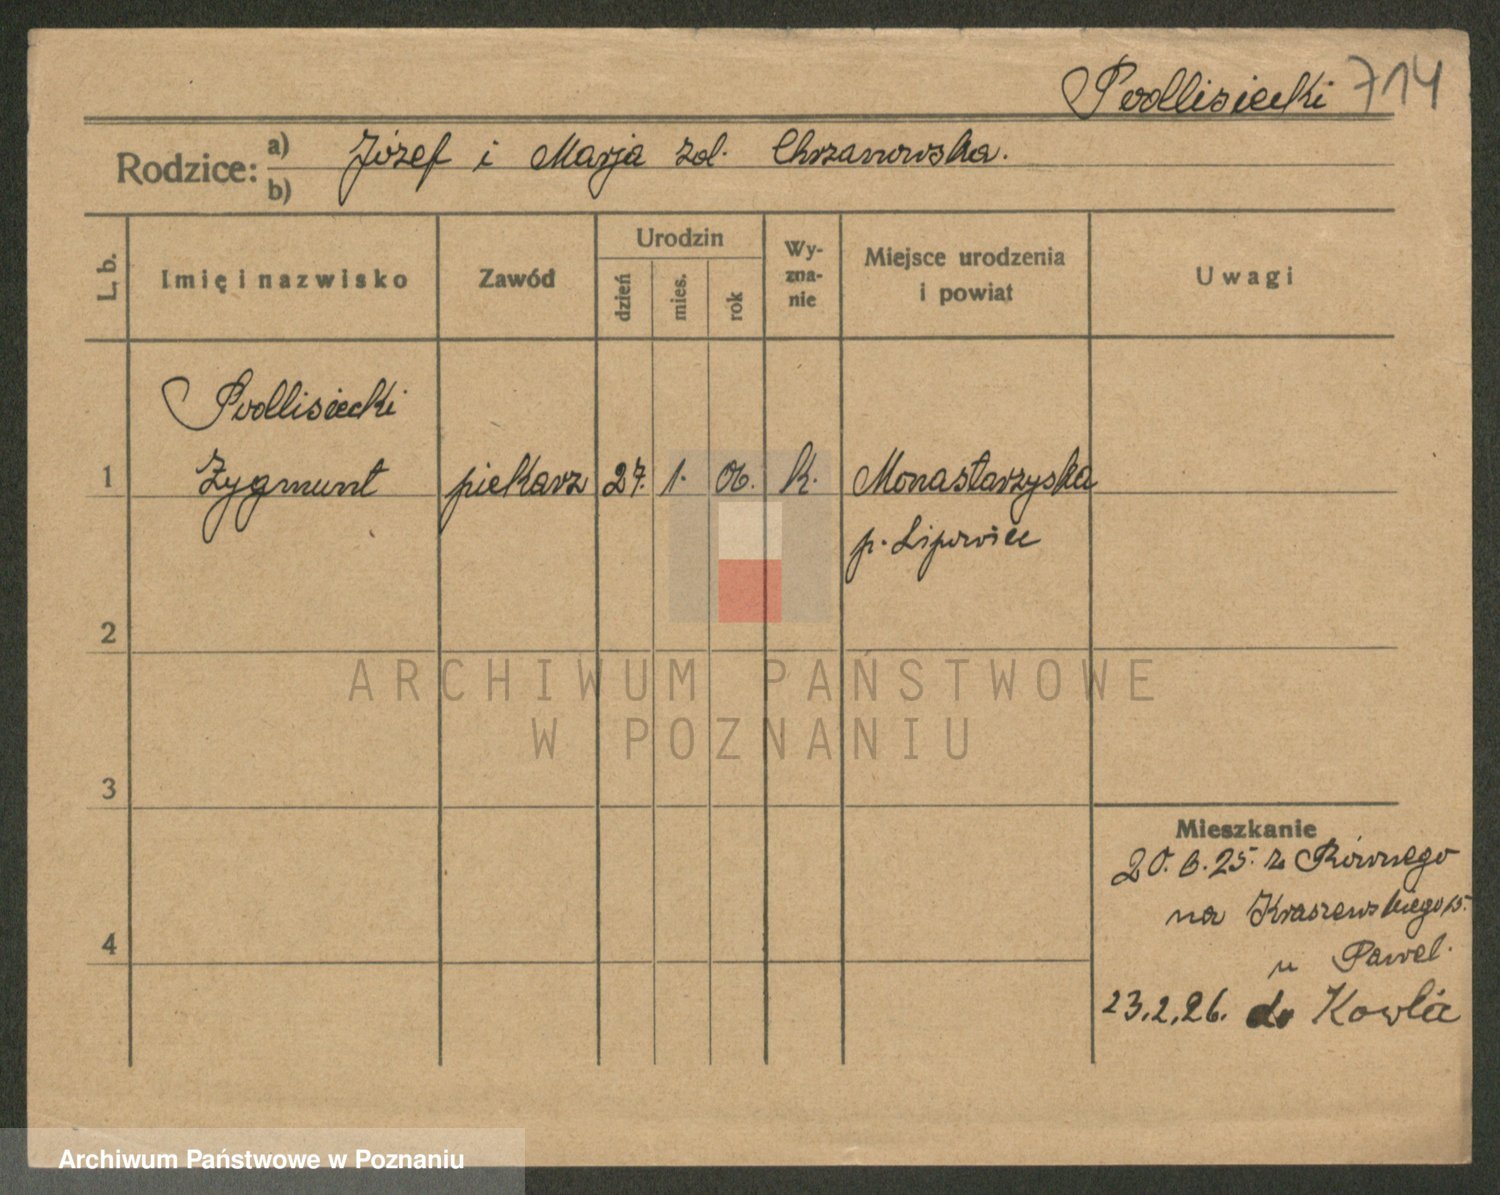 Podlisiecki 714
Rodzice: a) Józef i Marja zd. Chrzanowska.
b)
L. b.
Imię i nazwisko
Zawód
Urodzin
dzień
mies.
rok
Wy-
zna-
nie
Miejsce urodzenia
i powiat
Uwagi
Podlisiecki
1 Zygmunt piekarz 27. 1. 06. k. Monastarzyska
p. Lipowiec
2
ARCHIWUM PAŃSTWOWE
W POZNANIU
3
Mieszkanie
20. 6. 25. z Równego
na Kraszewskiego 15.
4
u Pawel.
23.2.26. do Kowla
Archiwum Państwowe w Poznaniu